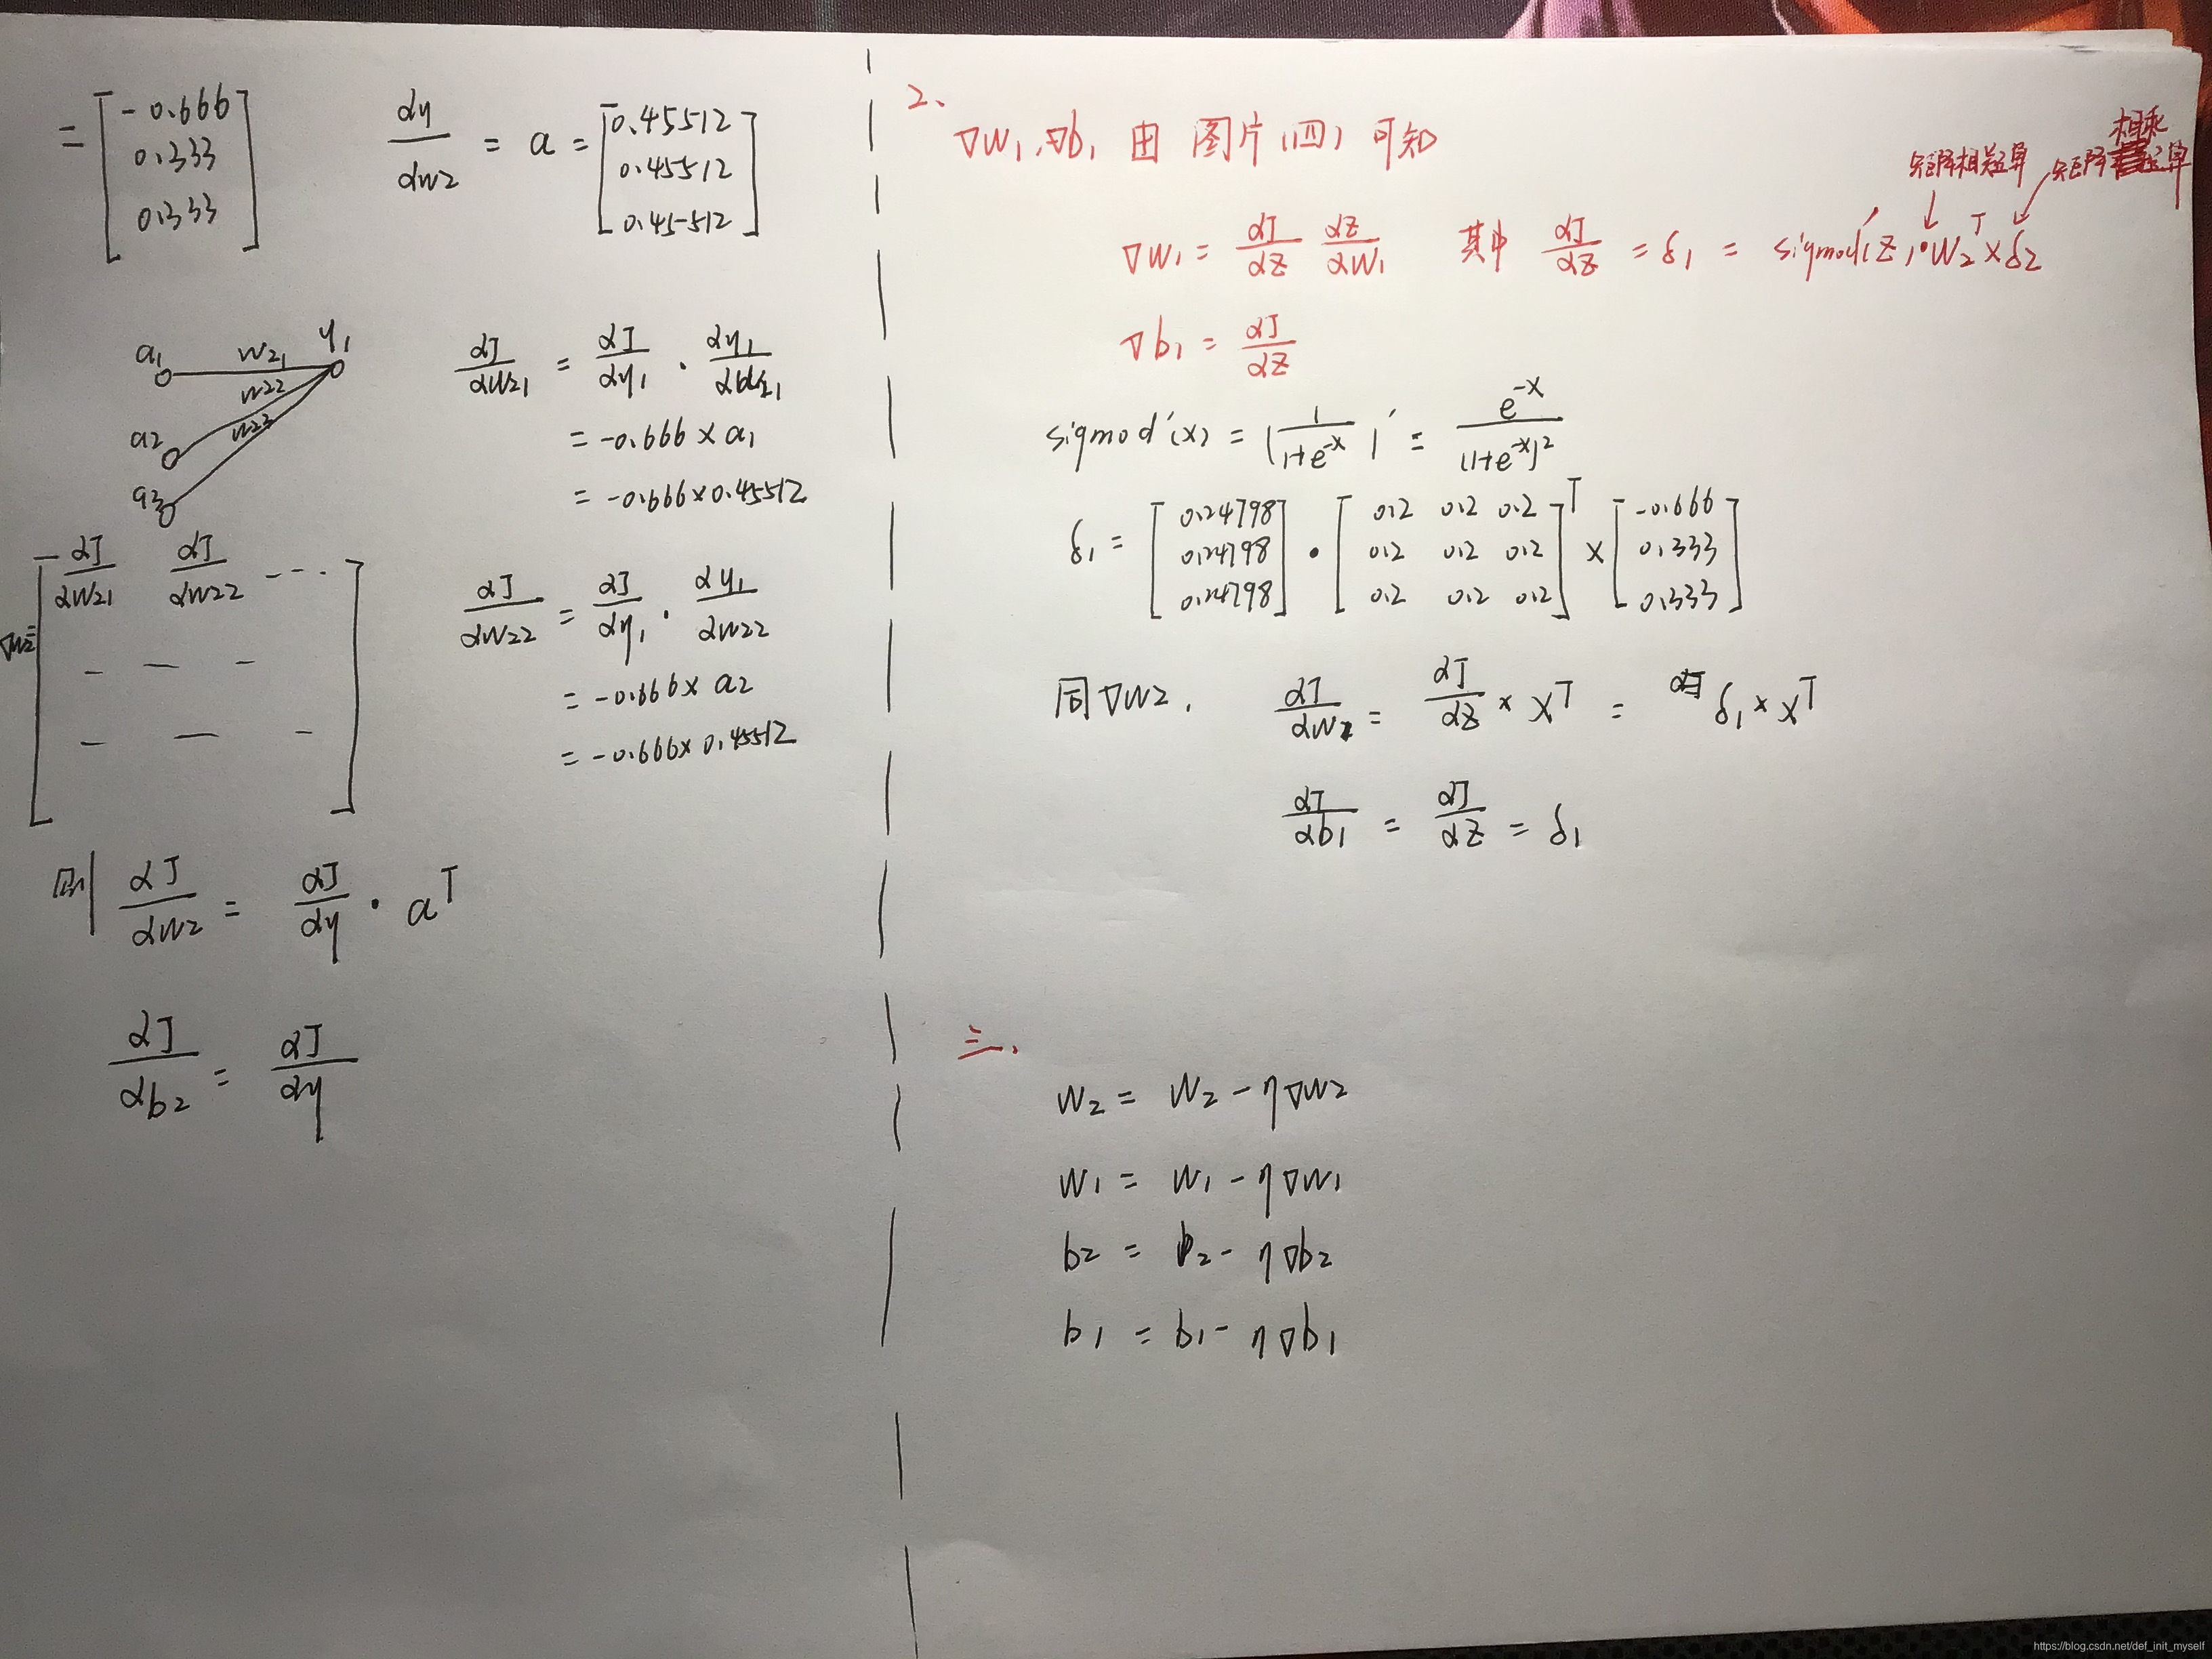 = [ -0.666 0.333 0.333 ] dy/dw2 = a = [ 0.45512 0.45512 0.45512 ]
a1 w21 y1
w22
a2 w23
a3
dJ/dw21 = dJ/dy1 · dy1/dw21
= -0.666 × a1
= -0.666×0.45512
∇w2= [ dJ/dw21 dJ/dw22 ---
- - -
- - - ]
dJ/dw22 = dJ/dy1 · dy1/dw22
= -0.666× a2
= -0.666× 0.45512
则 dJ/dw2 = dJ/dy · a^T
dJ/db2 = dJ/dy
2、
∇w1、∇b1 由 图片(四) 可知
矩阵相关运算
矩阵相乘运算
∇w1 = dJ/dz dz/dw1 其中 dJ/dz = δ1 = sigmod'(z)•W2^T×δ2
∇b1 = dJ/dz
sigmod'(x) = (1/(1+e^-x))' = e^-x/(1+e^-x)^2
δ1 = [ 0.24798 0.24798 0.24798 ] • [ 0.2 0.2 0.2 0.2 0.2 0.2 0.2 0.2 0.2 ]^T × [ -0.666 0.333 0.333 ]
同∇w2. dJ/dw = dJ/dz × x^T = δ1 × x^T
dJ/db1 = dJ/dz = δ1
三、
w2 = w2 - η∇w2
w1 = w1 - η∇w1
b2 = b2 - η∇b2
b1 = b1 - η∇b1
https://blog.csdn.net/def_init_myself